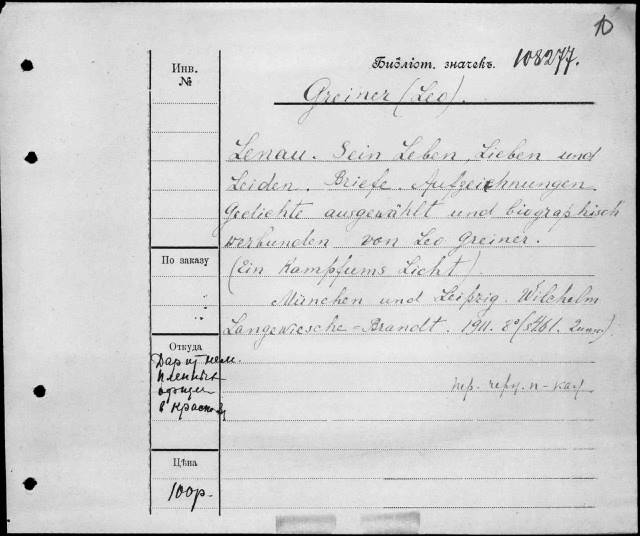 10
Инв. №
Библіот. значекъ. 108277.
Greiner (Leo).
Lenau. Sein Leben, Lieben und
Leiden. Briefe. Aufzeichnungen.
Gedichte ausgewählt und biographisch
verbunden von Leo Greiner.
(Ein Kampf ums Licht).
München und Leipzig. Wilchelm
Langewiesche-Brandt. 1911. 8º
По заказу
Откуда
Дар нем.
пленных
офицер
в Красн
пер.
Цѣна
100р.